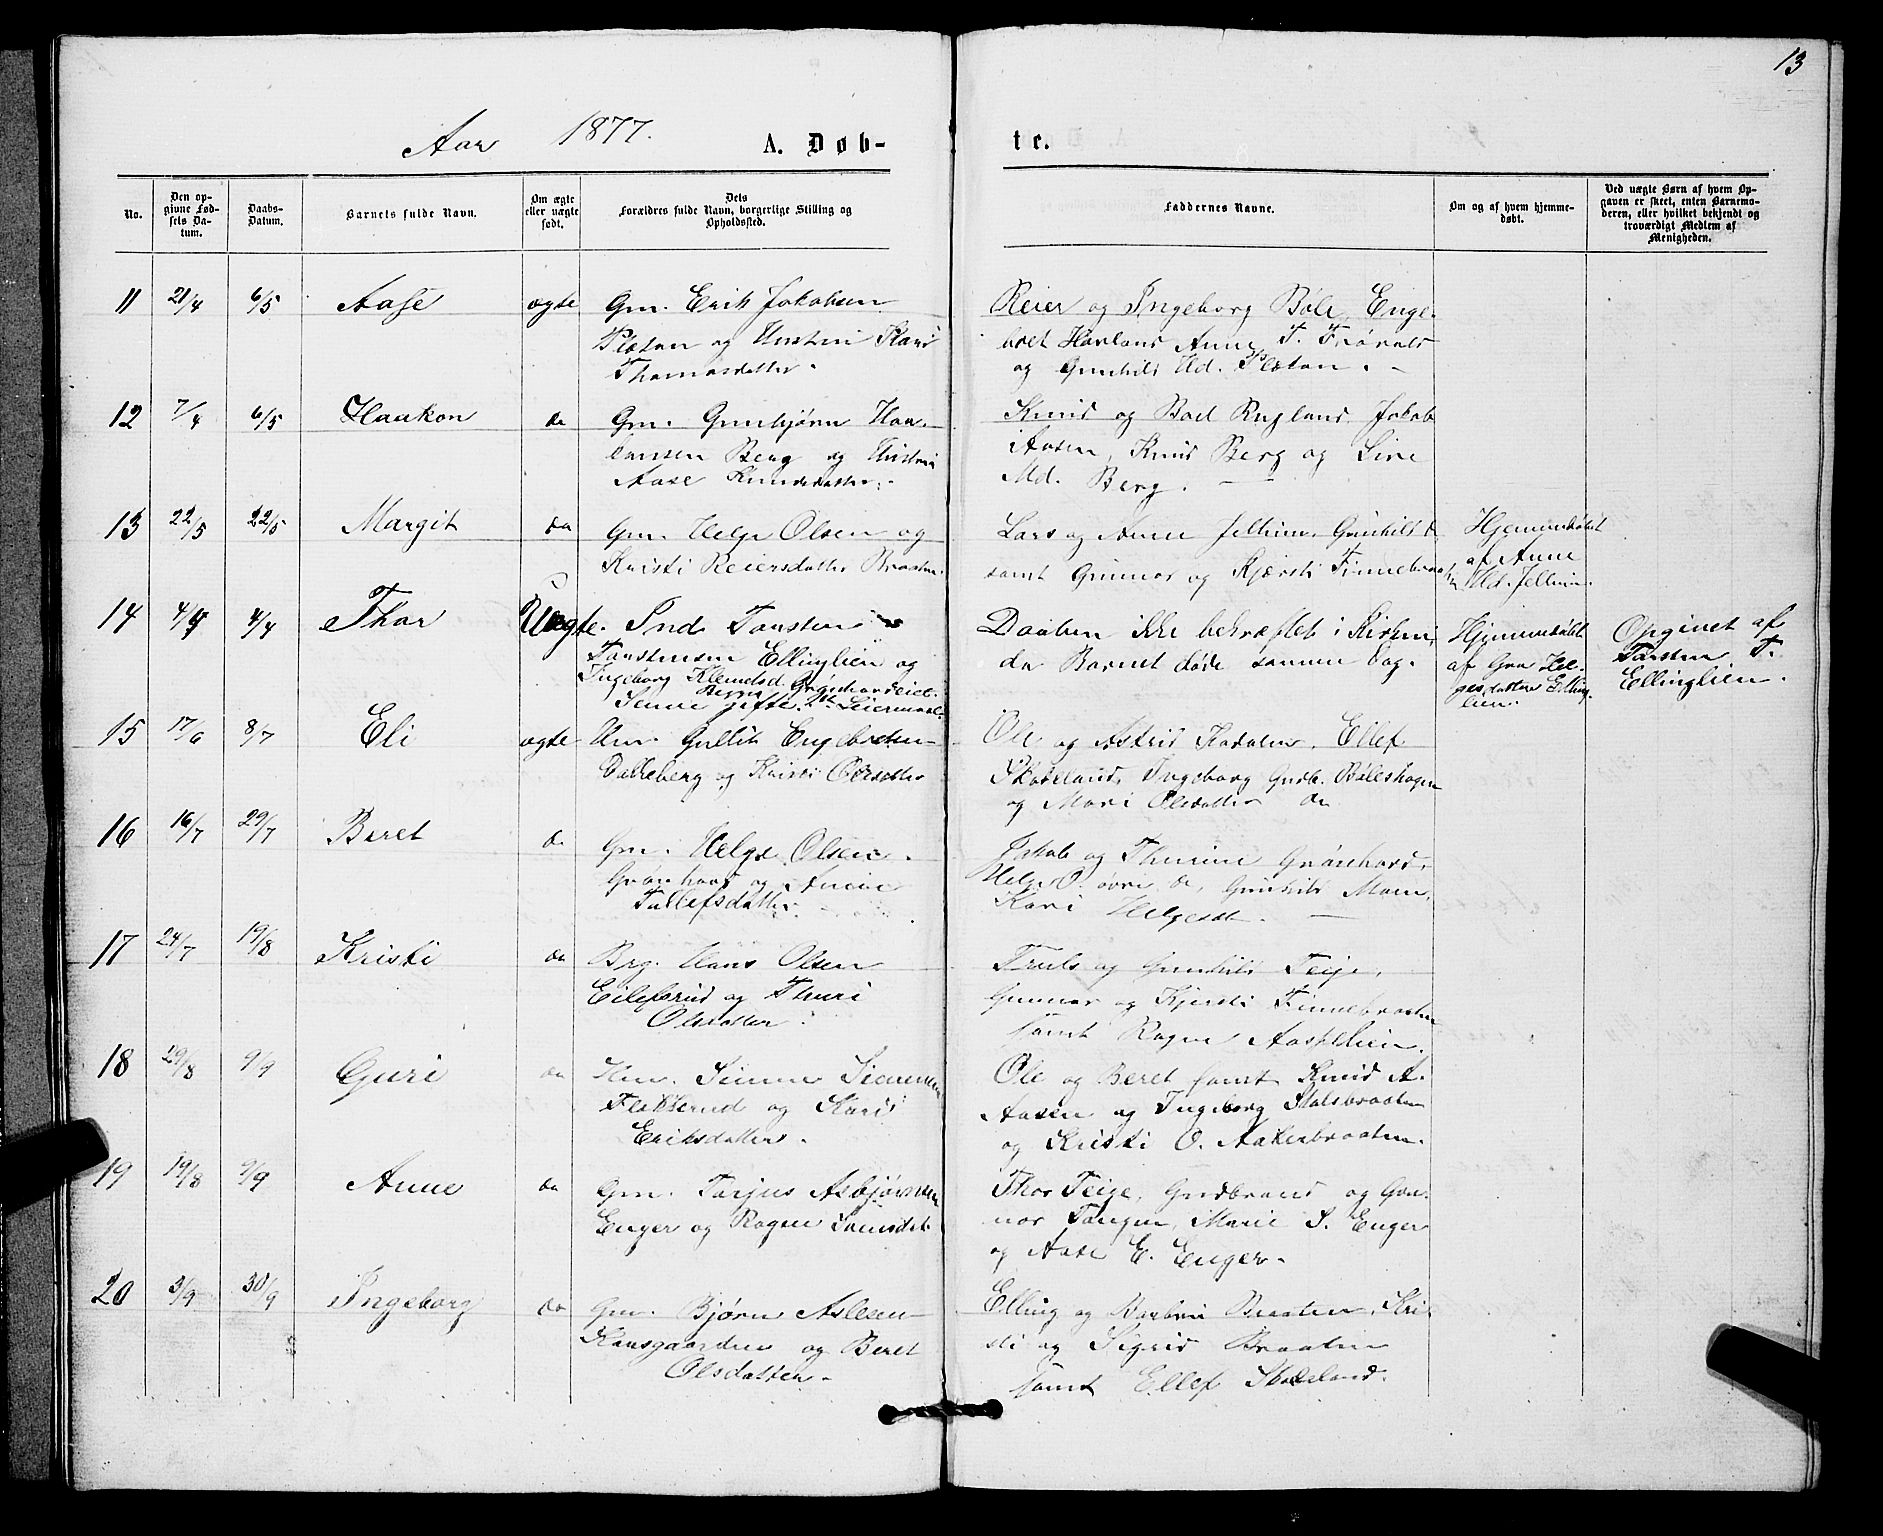 13
Aar 1877.
A. Døb-
te.
No.
Den op-
givne Fød-
sels Da-
tum.
Daabs-
Datum.
Barnets fulde Navn.
Om ægte
eller uægte
født.
Dets
Forældres fulde Navn, borgerlige Stilling og
Opholdssted.
Faddernes Navne.
Om og af hvem hjemme-
døbt.
Ved uægte Børn af hvem Op-
gaven er skeet, enten Barnemo-
deren, eller hvilket bekjendt og
troværdigt Medlem af
Menigheden.
11 21/4 6/5 Aase ægte Gm. Erik Jakobsen
Pladsen og Hustru Kari
Thomasdatter.
Reier og Ingeborg Bøle, Enge-
bret Havland Anne T.
og Gunhild Md. Pladsen.
12 7/4 6/5 Haakon do Gm. Gunbjørn Haa-
kansen Berg og Hustru
Aase Knudsdatter.
Knud og Boel Rugland, Jakob
Aasen, Knud Berg og Live
Md. Berg.
13 22/5 22/5 Margit do Gm. Helge Olsen og
Kristi Reiersdatter Braaten.
Lars og Anne Jellum, Gunhild D
samt Gunnar og Kjærsti Finnebraaten
Hjemmedøbt
af Anne
Md. Jellum.
14 4/4 4/4 Thor Uægte. Ind. Torsten
Torstensen Ellinglien og
Ingeborg Klemetsd. Grønhovdeiet.
Begge
ugifte. 2det Leiermaal.
Daaben ikke bekræftet i Kirken,
da Barnet døde samme Dag.
Hjemmedøbt
af Gro Hel-
gesdatter Elling-
lien.
Opgivet af
Torsten T.
Ellinglien.
15 17/6 8/7 Eli ægte Hm. Gullik Engebretsen
Bakkeberg og Kristi Olsdatter
Ole og Astrid Kadalen, Ellef
Skoleland, Ingeborg Gudb. Bøleshagen
og Mari Olsdatter do
16 16/7 29/7 Beret do Gm. Helge Olsen
Grønhovd og Anne
Tollefsdatter.
Jakob og Thurine Grønhovd,
Helge O. øvre do, Gunhild Moen,
Kari Helgesdt.
17 24/7 19/8 Kristi do Brg. Hans Olsen
Eilefsrud og Thuri
Olsdatter.
Truls og Gunhild Teige,
Gunnar og Kjersti Finnebraaten
samt Ragne Aaslilien.
18 29/8 9/9 Guri do Hm. Simen Simensen
Flakkerud og Kari
Eriksdatter.
Ole og Beret samt Knud A.
Aasen og Ingeborg Skalsbraaten
og Kristi O. Aakerbraaten.
19 19/8 9/9 Anne do Gm. Torjus Asbjørnsen
Enger og Ragne
Thor Teige, Gudbrand og Gun-
nor Tangen, Marie S. Enger
og Aase E. Enger.
20 3/9 30/9 Ingeborg do Gm. Bjørn Aslesen
Kansgaarden og Beret
Olsdatter.
Elling og Barbro Braaten, Kri-
sti og Sigrid Braaten
samt Ellef Skoleland.